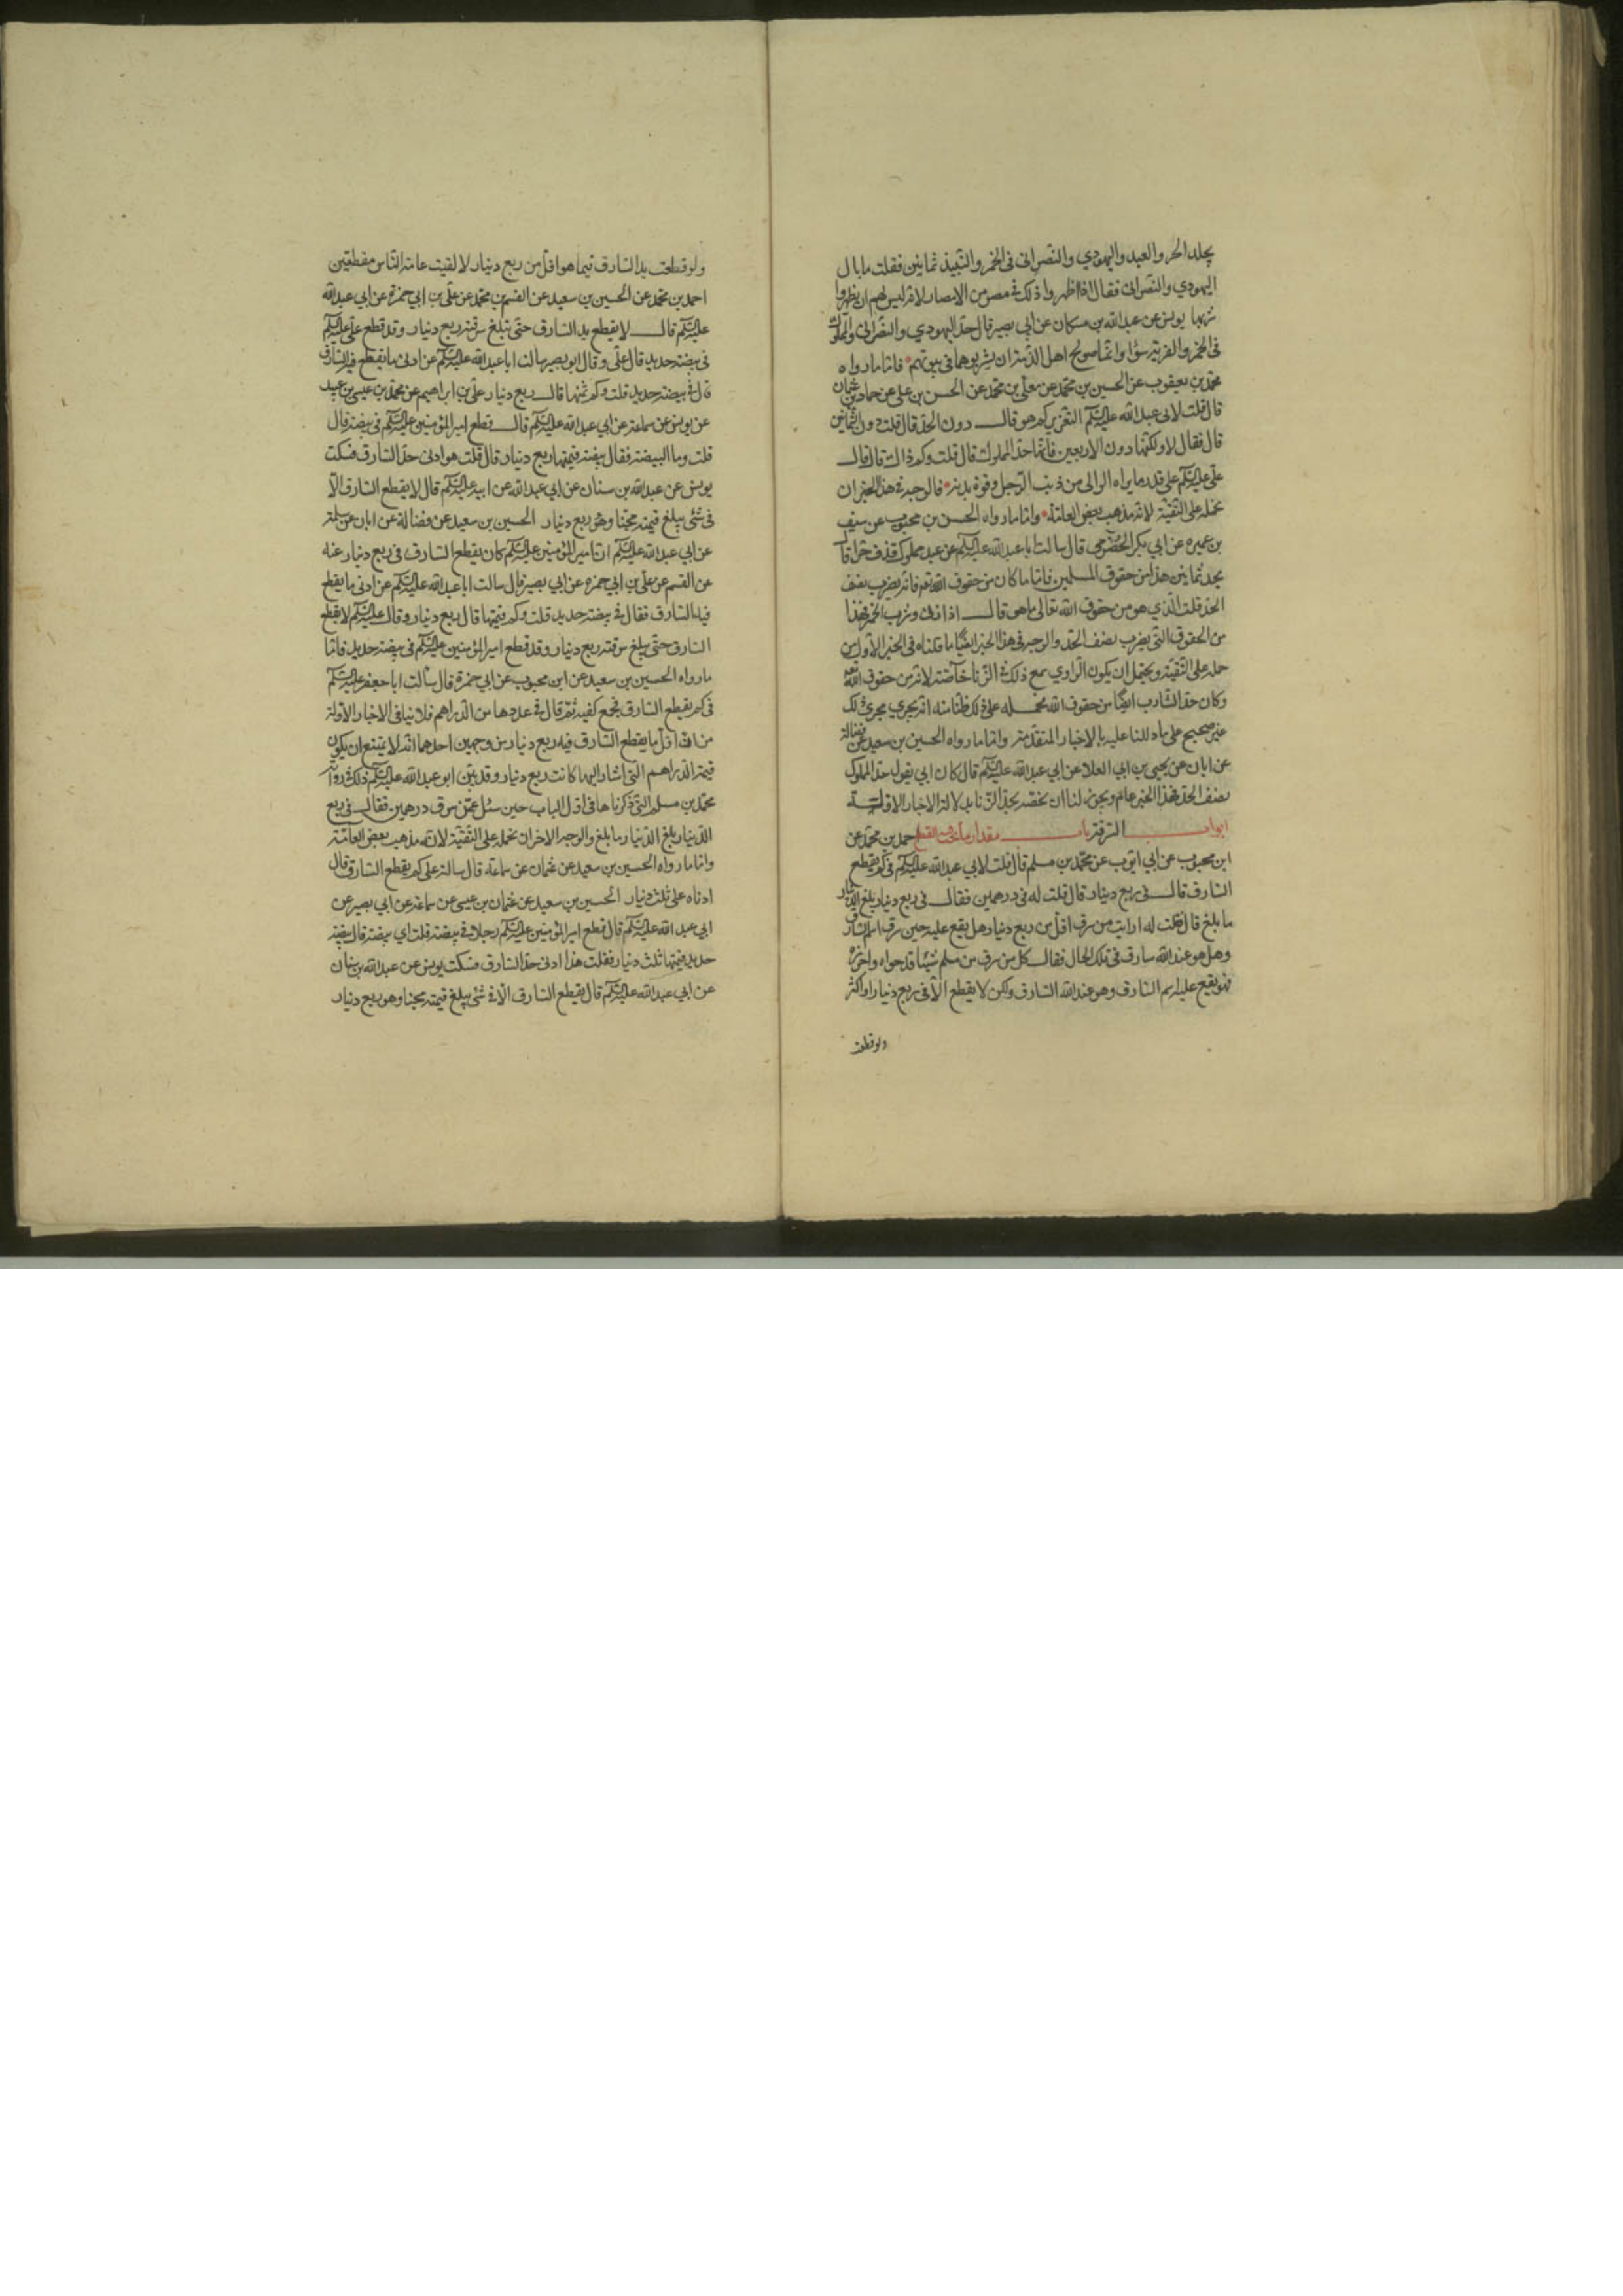 يجلد الحر والعبد واليهودي والنصراني في الخمر والنبيذ ثمانين فقلت ما بال
اليهودي والنصراني فقال اذا اظهروا ذلك في مصر من الامصار لانه ليس لهم ان يظهروا
شربها يونس عن عبد الله بن مسكان عن ابي بصير قال حد اليهودي والنصراني والمملوك
في الخمر والفرية سواء وانما صولح اهل الذمة ان يشربوها في بيوتهم فاما ما رواه
محمد بن يعقوب عن الحسين بن محمد عن معلى بن محمد عن الحسن بن علي عن حماد بن عثمان
قال قلت لابي عبد الله عليه السلم التعزير كم هو قال دون الحد قال قلت دون ثمانين
قال فقال لا ولكنها دون الاربعين فانها حد المملوك قال قلت وكم ذاك قال قال
علي عليه السلم على قدر ما يراه الوالي من ذنب الرجل وقوة بدنه فالوجه في هذا الخبر ان
نحمله على التقية لانه مذهب بعض العامة واما ما رواه الحسن بن محبوب عن سيف
بن عميره عن ابي بكر الحضرمي قال سالت ابا عبد الله عليه السلم عن عبد مملوك قذف حرا قال
يجد ثمانين هذا من حقوق المسلمين فاما ما كان من حقوق الله تعم فانه يضرب نصف
الحد قلت الذي هو من حقوق الله تعالى ما هو قال اذا زنى وشرب الخمر فهذا
من الحقوق التي يضرب نصف الحد والوجه في هذا الخبر ايضًا ما قلناه في الخبر الاول من
حمله على التقية ويحتمل ان يكون الراوي سمع ذلك في الزنا خاصة لانه من حقوق الله
وكان حد الشارب ايضًا من حقوق الله فحمله على ذلك ظنا منه انه يجري مجرى ذلك
غير صحيح على ما دللنا عليه بالاخبار المتقدمة واما ما رواه الحسين بن سعيد عن فضالة
عن ابان عن يحيى بن ابي العلا عن ابي عبد الله عليه السلم قال كان ابي يقول حد المملوك
نصف الحد فهذا الخبر عام ويجوز لنا ان نخصه بحد الزنا بدلالة الاخبار الاولة
ابواب السرقة باب مقدار ما يجب فيه القطع احمد بن محمد عن
ابن محبوب عن ابي ايوب عن محمد بن مسلم قال قلت لابي عبد الله عليه السلم في كم يقطع
السارق قال في ربع دينار قال قلت له في درهمين فقال في ربع دينار بلغ الدينار
ما بلغ قال فقلت له ارايت من سرق اقل من ربع دينار هل يقع عليه حين سرق اسم السارق
وهل هو عند الله سارق في تلك الحال فقال كل من سرق من مسلم شيئا قد حواه واحرزه
فهو يقع عليه اسم السارق وهو عند الله السارق ولكن لا يقطع الا في ربع دينار او اكثر
ولو قطعت
ولو قطعت يد السارق فيما هو اقل من ربع دينار لالفيت عامة الناس مقطعين
احمد بن محمد عن الحسين بن سعيد عن القسم بن محمد عن علي بن ابي حمزة عن ابي عبد الله
عليه السلم قال لا يقطع يد السارق حتى تبلغ سرقته ربع دينار وقد قطع علي عليه السلم
في بيضة حديد قال علي وقال ابو بصير سالت ابا عبد الله عليه السلم عن ادنى ما يقطع فيه السارق
قال في بيضة حديد قلت وكم ثمنها قال ربع دينار علي بن ابراهيم عن محمد بن عيسى بن عبيد
عن يونس عن سماعة عن ابي عبد الله عليه السلم قال قطع امير المؤمنين عليه السلم في بيضة قال
قلت وما البيضة فقال بيضة قيمتها ربع دينار قال قلت هو ادنى حد السارق فسكت
يونس عن عبد الله بن سنان عن ابي عبد الله عن ابيه عليه السلم قال لا يقطع السارق الا
في شئ يبلغ قيمته مجنا وهو ربع دينار الحسين بن سعيد عن فضالة عن ابان عن سلمة
عن ابي عبد الله عليه السلم ان امير المؤمنين عليه السلم كان يقطع السارق في ربع دينار عنه
عن القسم عن علي بن ابي حمزه عن ابي بصير قال سالت ابا عبد الله عليه السلم عن ادنى ما يقطع
فيه السارق فقال في بيضة حديد قلت وكم قيمتها قال ربع دينار وقال عليه السلم لا يقطع
السارق حتى يبلغ سرقته ربع دينار وقد قطع امير المؤمنين عليه السلم في بيضة حديد فاما
ما رواه الحسين بن سعيد عن ابن محبوب عن ابي حمزة قال سالت ابا جعفر عليه السلم
في كم يقطع السارق فجمع كفيه ثم قال في عددها من الدراهم فلا ينافي الاخبار الاولة
من ان اقل ما يقطع السارق فيه ربع دينار من وجهين احدهما انه لا يمتنع ان يكون
قيمة الدراهم التي اشار اليها كانت ربع دينار وقد بين ابو عبد الله عليه السلم ذلك في رواية
محمد بن مسلم التي ذكرناها في اول الباب حين سئل عمن سرق درهمين فقال في ربع
الدينار بلغ الدينار ما بلغ والوجه الاخر ان نحمله على التقية لانه مذهب بعض العامة
واما ما رواه الحسين بن سعيد عن عثمان عن سماعة قال سالته على كم يقطع السارق قال
ادناه على ثلث دينار الحسين بن سعيد عن عثمان بن عيسى عن سماعة عن ابي بصير عن
ابي عبد الله عليه السلم قال قطع امير المؤمنين عليه السلم رجلا في بيضة قلت اي بيضة قال بيضة
حديد قيمتها ثلث دينار فقلت هذا ادنى حد السارق فسكت يونس عن عبد الله بن سنان
عن ابي عبد الله عليه السلم قال يقطع السارق الا في شئ يبلغ قيمته مجنا وهو ربع دينار